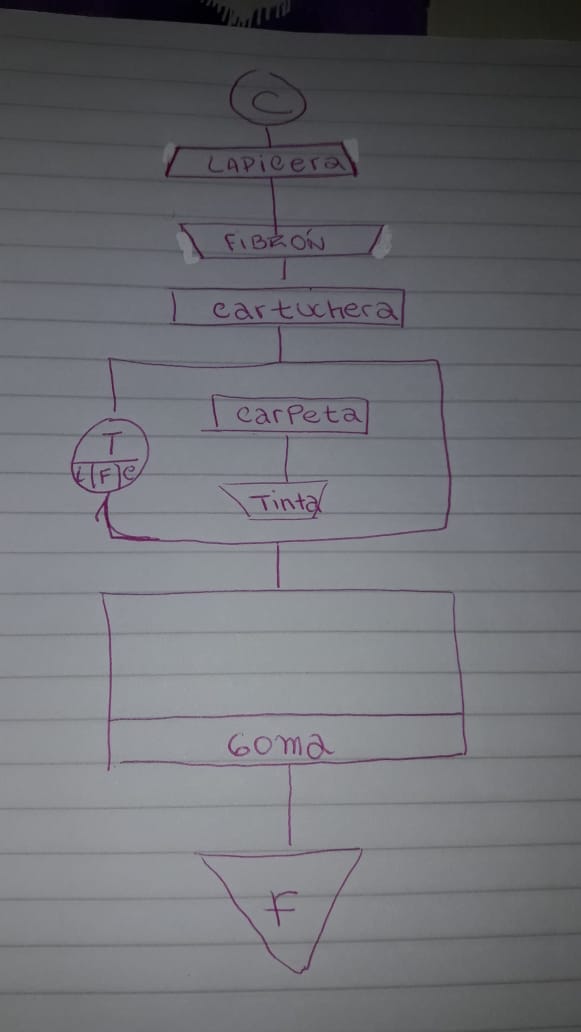 C
LAPicera
FiBRÓN
cartuchera
carpeta
T
F e
Tinta
Goma
F